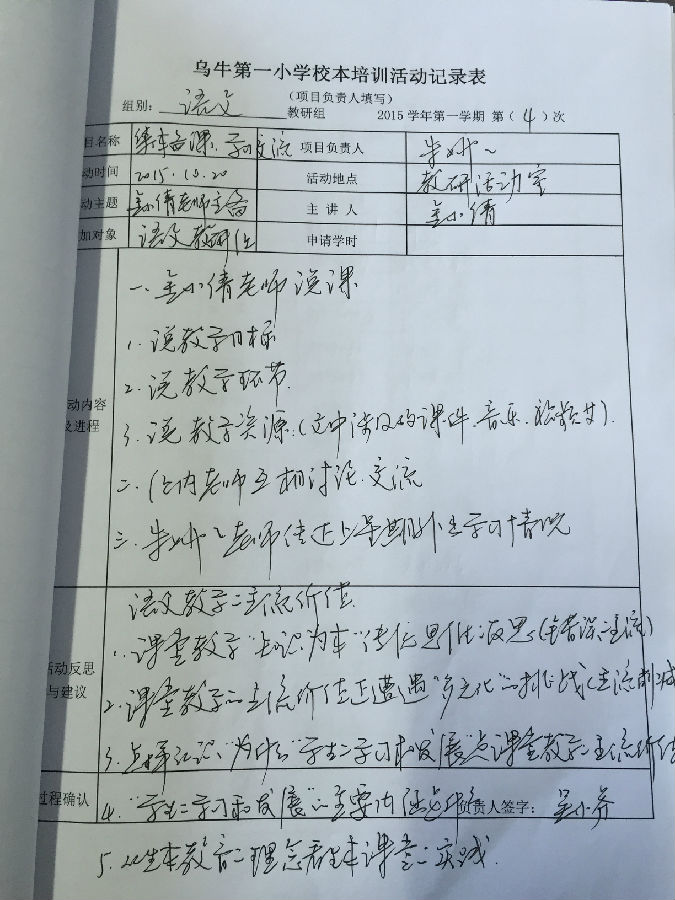 乌牛第一小学校本培训活动记录表
（项目负责人填写）
组别: 语文 教研组 2015学年第一学期 第(4)次
目名称 集体备课、学习交流 项目负责人 朱
动时间 2015.10.20 活动地点 教研活动室
动主题 金小倩老师主备 主讲人 金小倩
加对象 语文教研组 申请学时
动内容
及进程
一、金小倩老师说课
1. 说教学目标
2. 说教学环节
3. 说教学资源（文中涉及的课件、音乐、视频等）.
二、组内老师互相讨论、交流
三、朱 老师传达上星期外出学习情况
动反思
与建议
语文教学二主流价值
1. 课堂教学"知识为本"传统 思
2. 课堂教学的主流价值正遭遇"多元化"的挑战（主流削减
3. 认识、"为什么"学生二学习和发展"是课堂教学二主流价值
过程确认 负责人签字:
4. "学生二学习和发展"的主要内涵是什么
5. 从生本教育二理念看生本课堂二实践